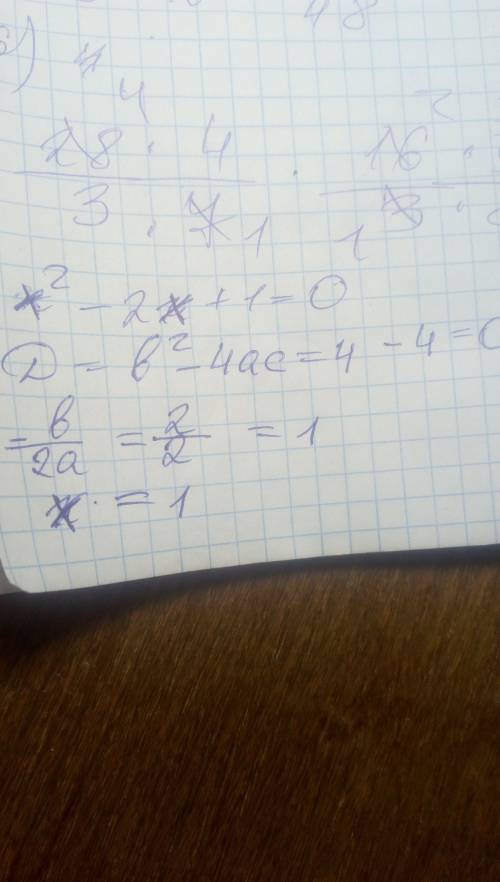 48
б)
4
28 · 4 / 3 · 7 1 · 16 · / 3 ·
x² - 2x + 1 = 0
D = b² - 4ac = 4 - 4 = 0
- b / 2a = 2 / 2 = 1
x = 1